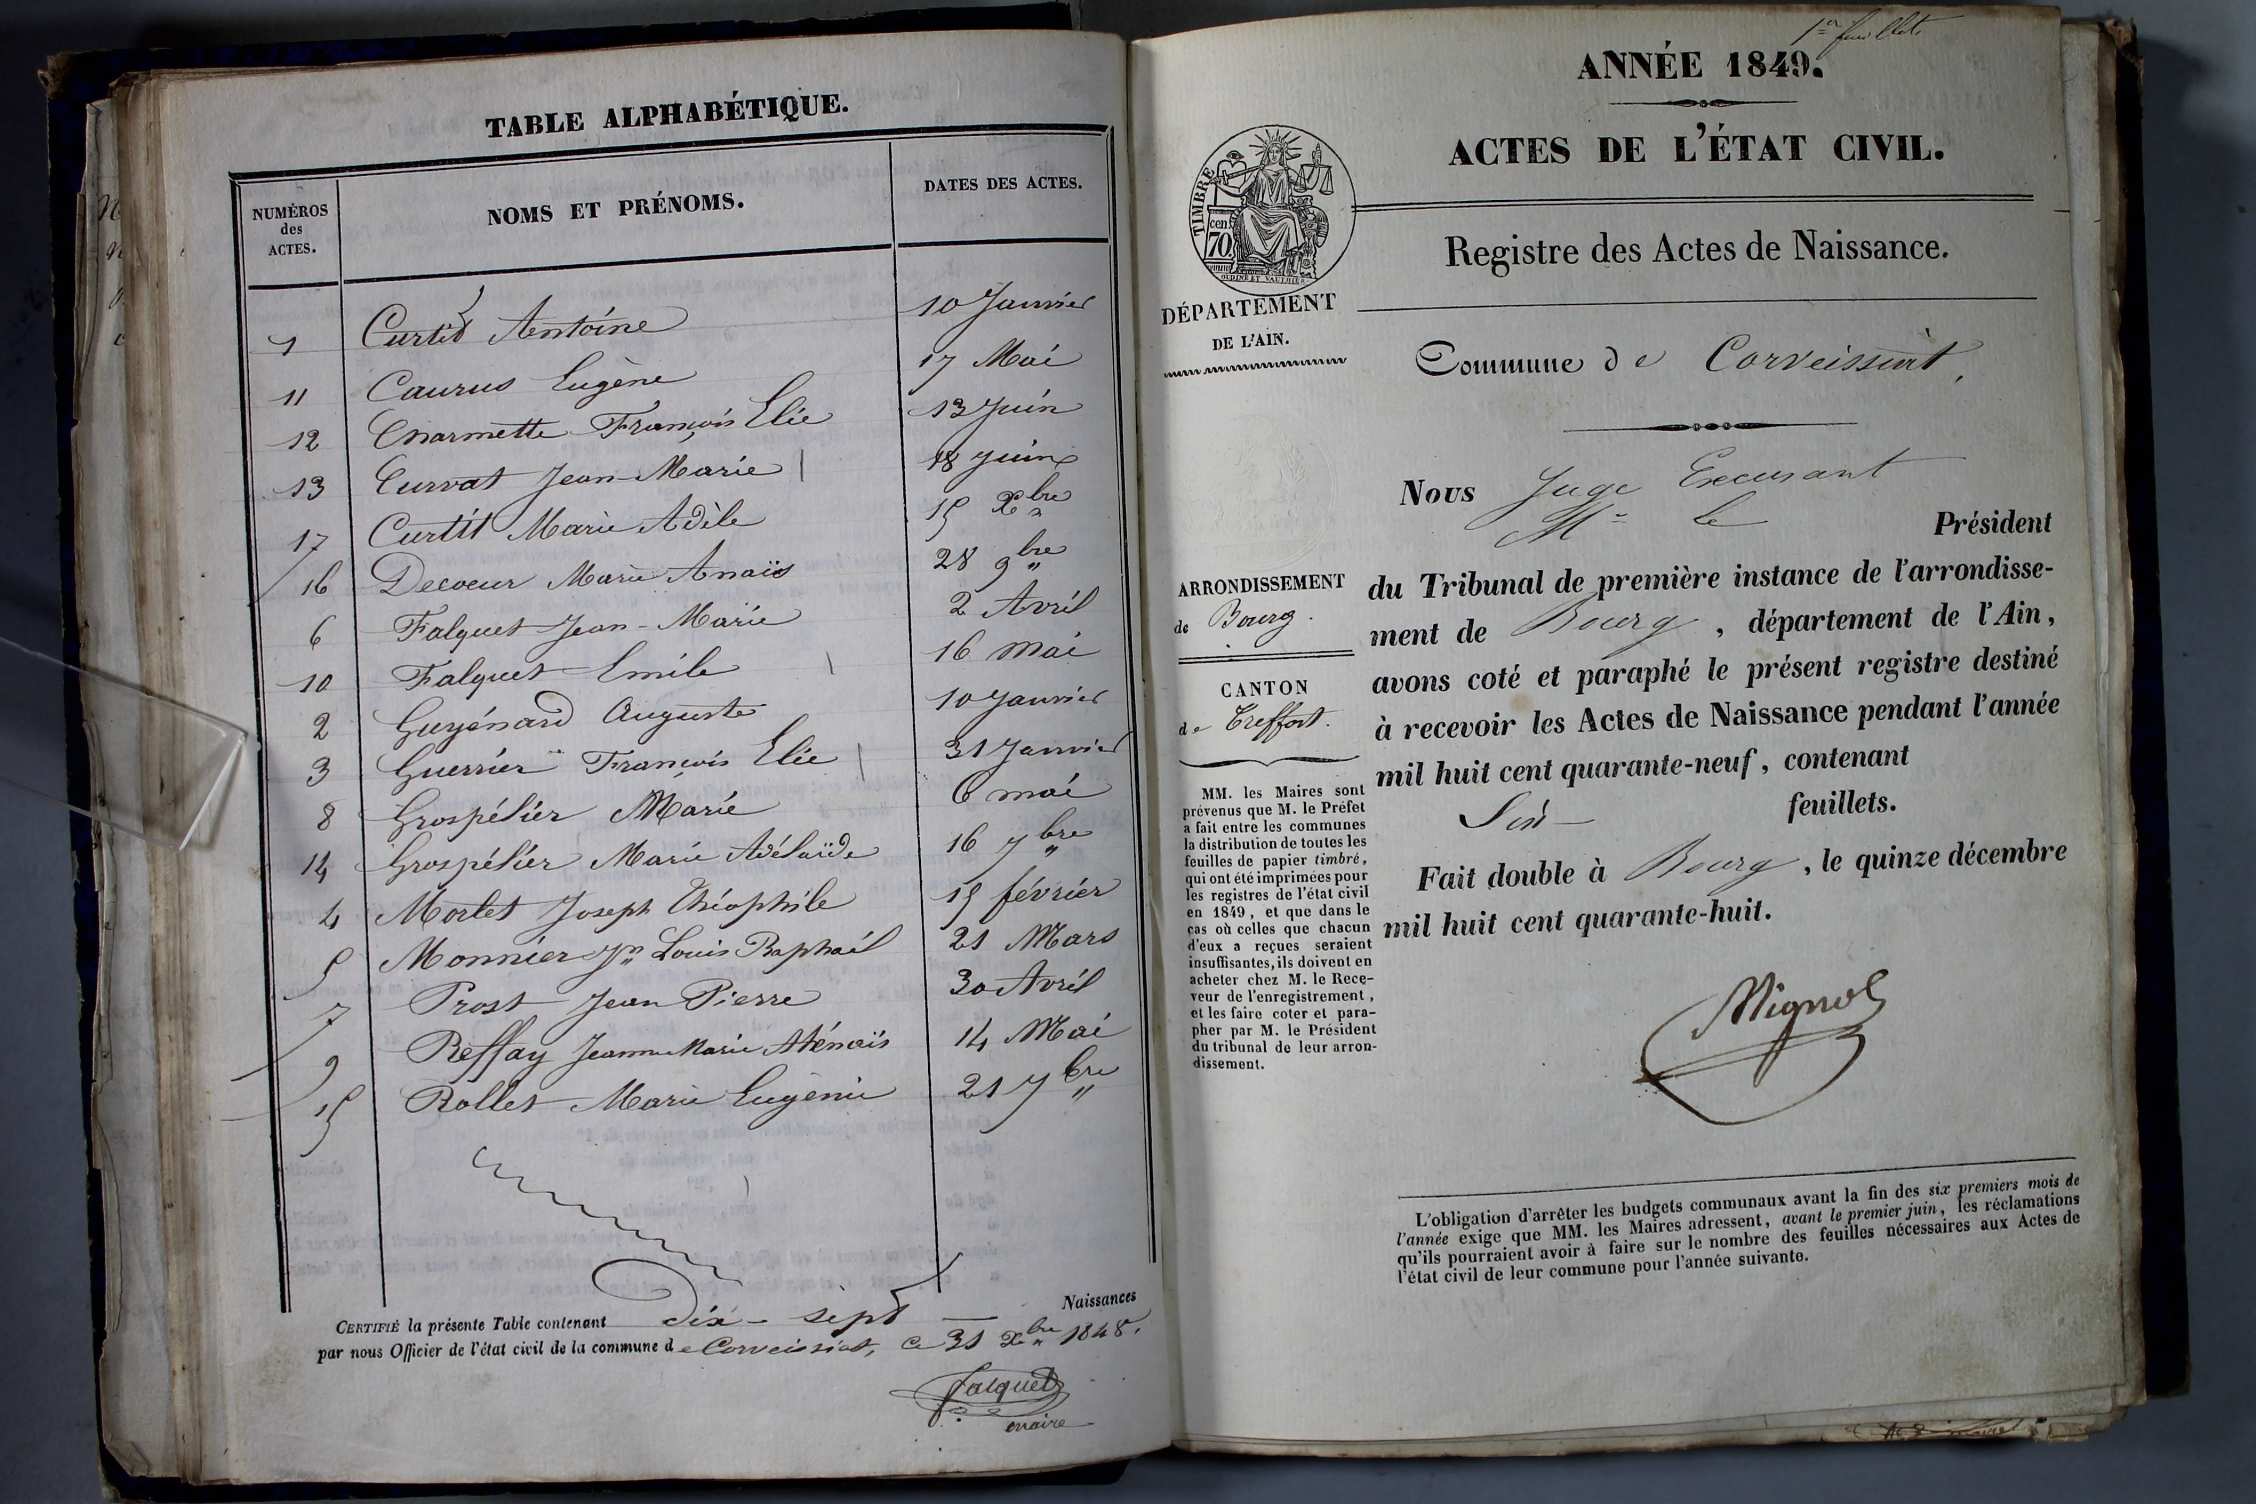 TABLE ALPHABÉTIQUE.
NUMÉROS des ACTES.
NOMS ET PRÉNOMS.
DATES DES ACTES.
1 Curtit Antoine 10 Janvier
11 Caurus Eugène 17 Mai
12 Charmette François Elie 13 Juin
13 Curvat Jean-Marie 18 Juin
17 Curtit Marie Adèle 15 Xbre
16 Decoeur Marie Anaïs 28 9bre
6 Falquet Jean-Marie 2 Avril
10 Falquet Emile 16 Mai
2 Guyénard Auguste 10 Janvier
3 Guerrier François Elie 31 Janvier
8 Grospélier Marie 6 mai
14 Grospélier Marie Adélaïde 16 7bre
4 Morlet Joseph Théophile 15 février
5 Monnier Jn Louis Raphaël 21 Mars
7 Prost Jean Pierre 30 Avril
9 Reffay Jeanne Marie Aténaïs 14 Mai
15 Rollet Marie Eugénie 21 7bre
CERTIFIÉ la présente Table contenant Dix-sept Naissances
par nous Officier de l'état civil de la commune de Corveissiat, ce 31 Xbre 1848.
Falquet
maire
1er feuillet
ANNÉE 1849.
ACTES DE L'ÉTAT CIVIL.
TIMBRE
70
cen.
OUDINÉ ET VAUTHIER
Registre des Actes de Naissance.
DÉPARTEMENT
DE L'AIN.
Commune de Corveissiat,
Nous Juge Excusant
Mr le Président
du Tribunal de première instance de l'arrondisse-
ment de Bourg, département de l'Ain,
avons coté et paraphé le présent registre destiné
à recevoir les Actes de Naissance pendant l'année
mil huit cent quarante-neuf, contenant
Six feuillets.
Fait double à Bourg, le quinze décembre
mil huit cent quarante-huit.
Mignot
ARRONDISSEMENT
de Bourg.
CANTON
de Treffort.
MM. les Maires sont
prévenus que M. le Préfet
a fait entre les communes
la distribution de toutes les
feuilles de papier timbré,
qui ont été imprimées pour
les registres de l'état civil
en 1849, et que dans le
cas où celles que chacun
d'eux a reçues seraient
insuffisantes, ils doivent en
acheter chez M. le Rece-
veur de l'enregistrement,
et les faire coter et para-
pher par M. le Président
du tribunal de leur arron-
dissement.
L'obligation d'arrêter les budgets communaux avant la fin des six premiers mois de
l'année exige que MM. les Maires adressent, avant le premier juin, les réclamations
qu'ils pourraient avoir à faire sur le nombre des feuilles nécessaires aux Actes de
l'état civil de leur commune pour l'année suivante.